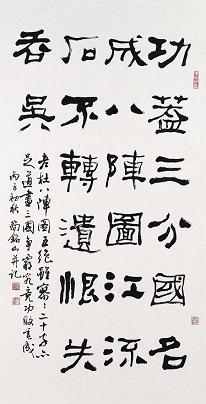 功蓋三分國名
成八陣圖江流
石不轉遺恨失
吞吳
老杜八陣圖五絕雖寥〻二十字
足道盡三國爭究竟功敗垂成
丙子初秋銘山并記